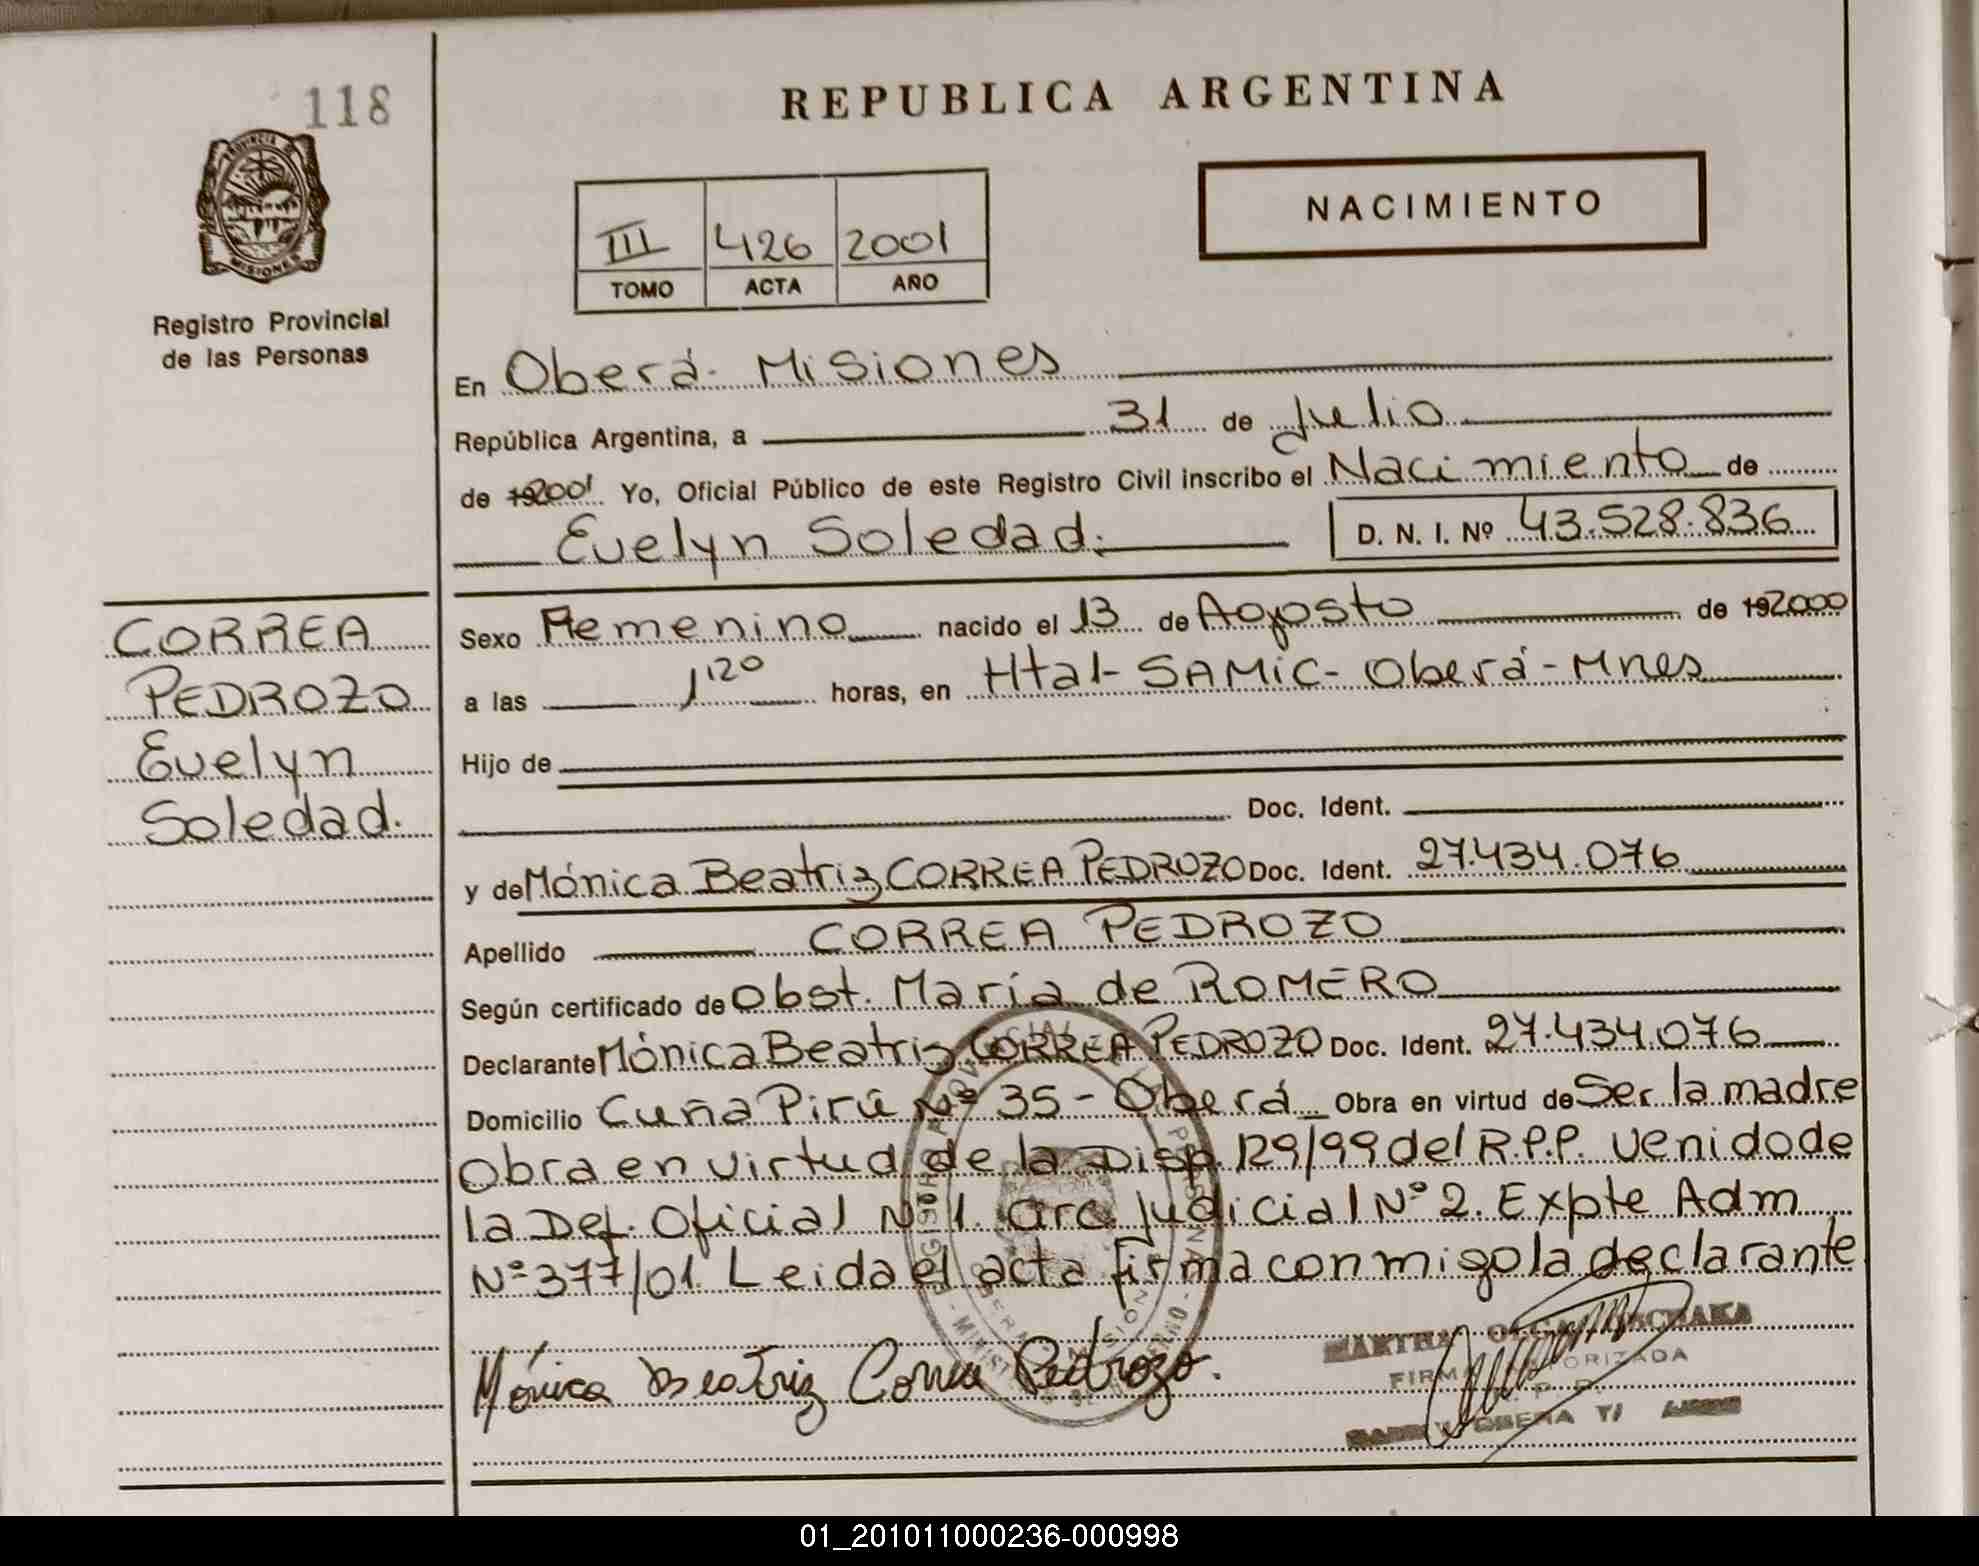 118
REPUBLICA ARGENTINA
PROVINCIA DE
MISIONES
NACIMIENTO
III 426 2001
TOMO ACTA AÑO
Registro Provincial
de las Personas
En Oberá - Misiones
República Argentina, a 31 de Julio
de 192001 Yo, Oficial Público de este Registro Civil inscribo el Nacimiento de
Evelyn Soledad. D. N. I. Nº 43.528.836
CORREA
PEDROZO
Evelyn
Soledad.
Sexo Femenino nacido el 13 de Agosto de 192000
a las 1 20 horas, en Htal - SAMIC - Oberá - Mnes
Hijo de
Doc. Ident.
y de Mónica Beatriz CORREA PEDROZO Doc. Ident. 27.434.076
Apellido CORREA PEDROZO
Según certificado de Obst. María de ROMERO
Declarante Mónica Beatriz CORREA PEDROZO Doc. Ident. 27.434.076
Domicilio Cuña Pirú Nº 35 - Oberá Obra en virtud de Ser la madre
Obra en virtud de la Disp. 129/99 del R.P.P. venido de
la Def. Oficial Nº 1. Circ. Judicial Nº 2. Expte Adm
Nº 377/01. Leida el acta firma conmigo la declarante
Mónica Beatriz Correa Pedrozo.
MARTHA
FIRMA AUTORIZADA
R. P. P.
OBERA
01_201011000236-000998